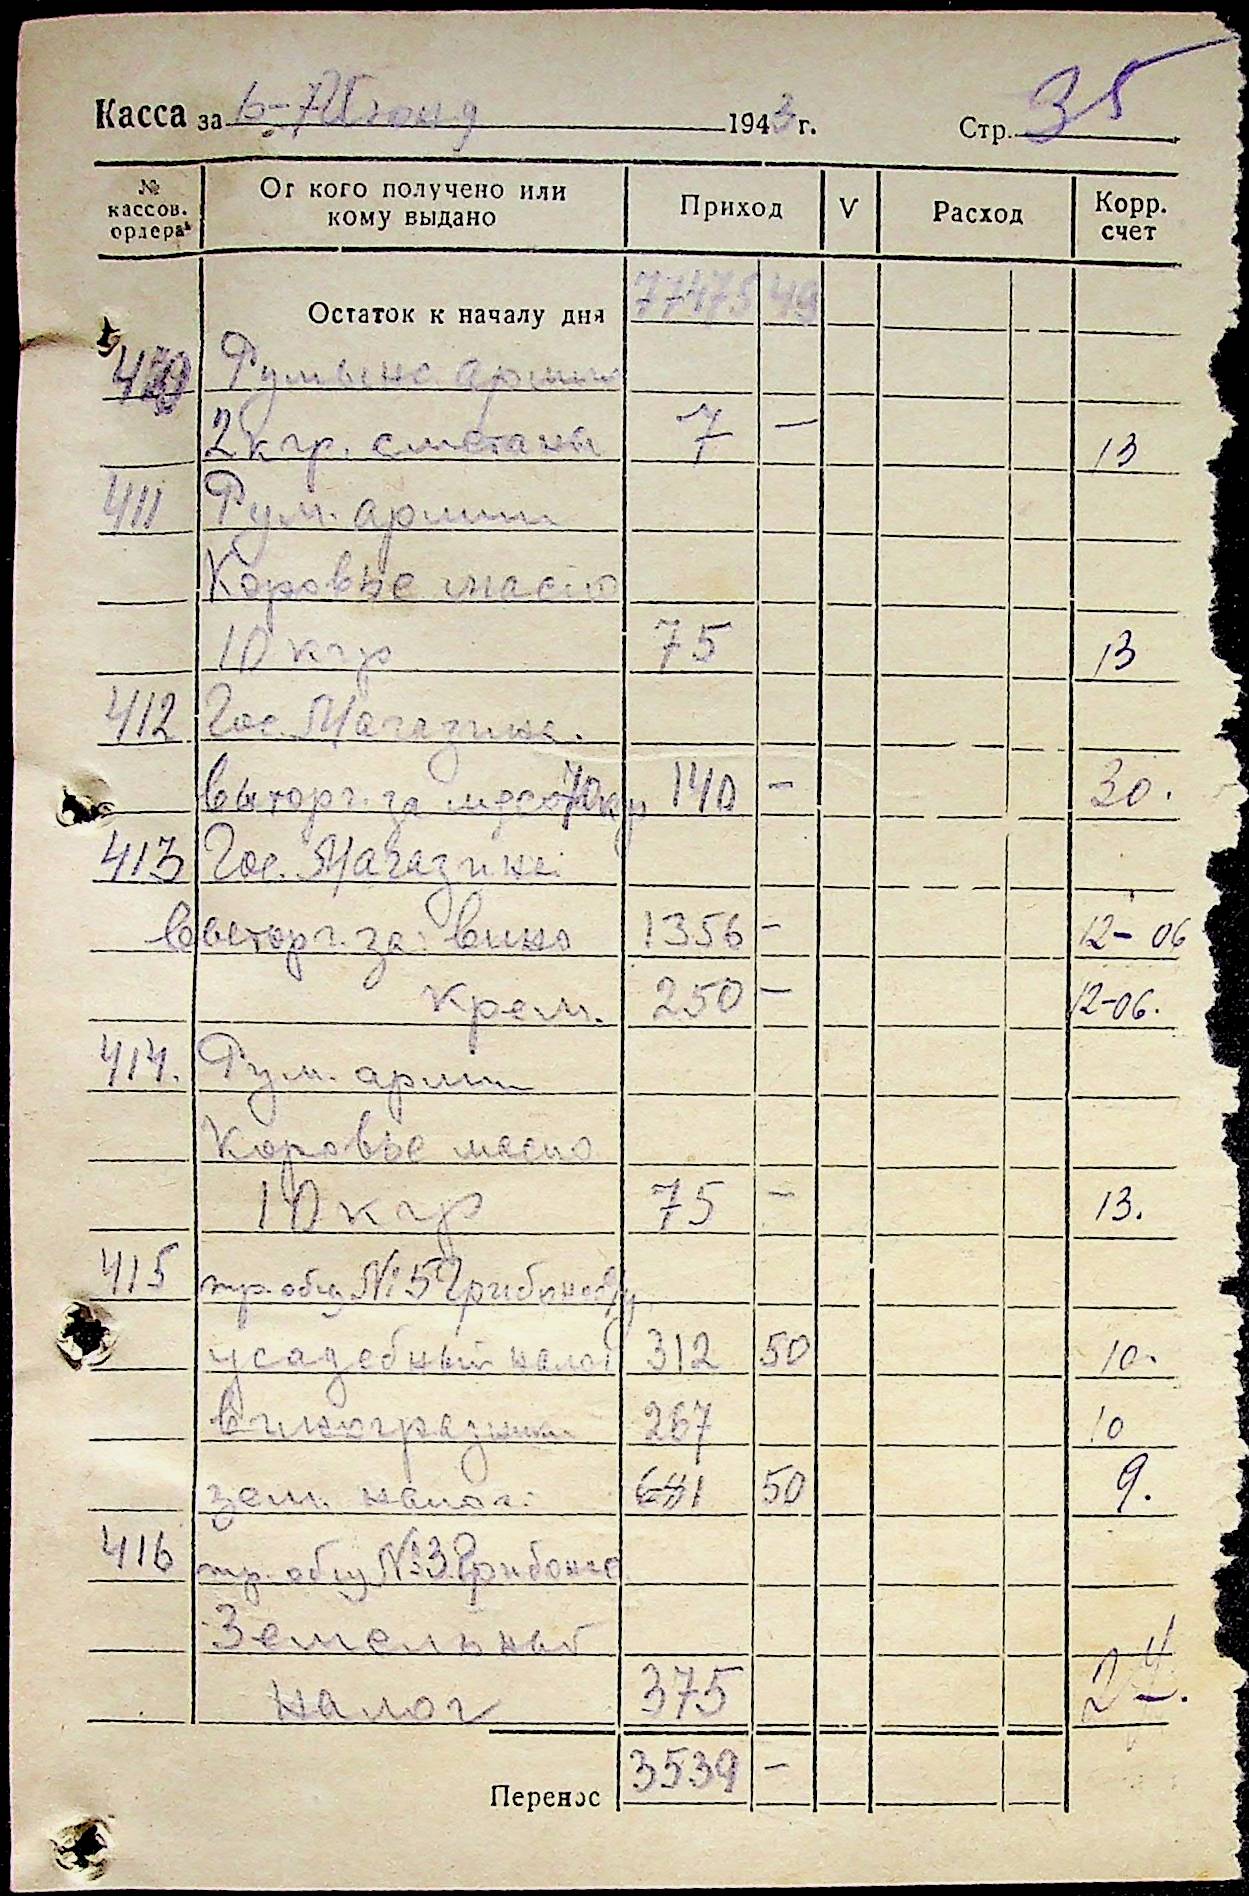 Касса за 6-7 Июня 1943 г. Стр. 35
№ кассов. ордера От кого получено или кому выдано Приход V Расход Корр. счет
Остаток к началу дня 77475 49
410 Румынс армии
2 кгр. сметаны 7 — 13
411 Рум. армии
Коровье масло
10 кгр 75 13
412 Гос. Магазина.
выторг. за мясо 70 кгр 140 - 30.
413 Гос. Магазина
выторг. за: вино 1356 - 12-06
крем. 250 - 12-06.
414. Рум. армии
Коровье масло
10 кгр 75 - 13.
415 тр. общ №5 Грибоново
усадебный налог 312 50 10.
виноградник 267 10
зем. налог. 681 50 9.
416 тр. общ №3 Грибоно
Земельный
налог 375 24.
Перенос 3539 -